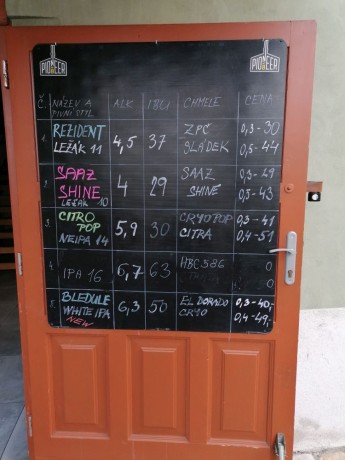 PIONEER PIONEER
Č. NÁZEV A PIVNÍ STYL ALK IBU CHMELE CENA
1. REZIDENT 4,5 37 ŽPČ 0,3-30
LEŽÁK 11 SLÁDEK 0,5-44
2. SAAZ 4 29 SAAZ 0,3-29
SHINE SHINE 0,5-43
LEŽÁK 10
3. CITRO 5,9 30 CRYOPOP 0,3-41
POP CITRA 0,4-51
NEIPA 14
4. IPA 16 6,7 63 HBC 586 0
0
5. BLEDULE 6,3 50 EL DORADO 0,3-40,-
WHITE IPA CRYO 0,4-49,-
NEW